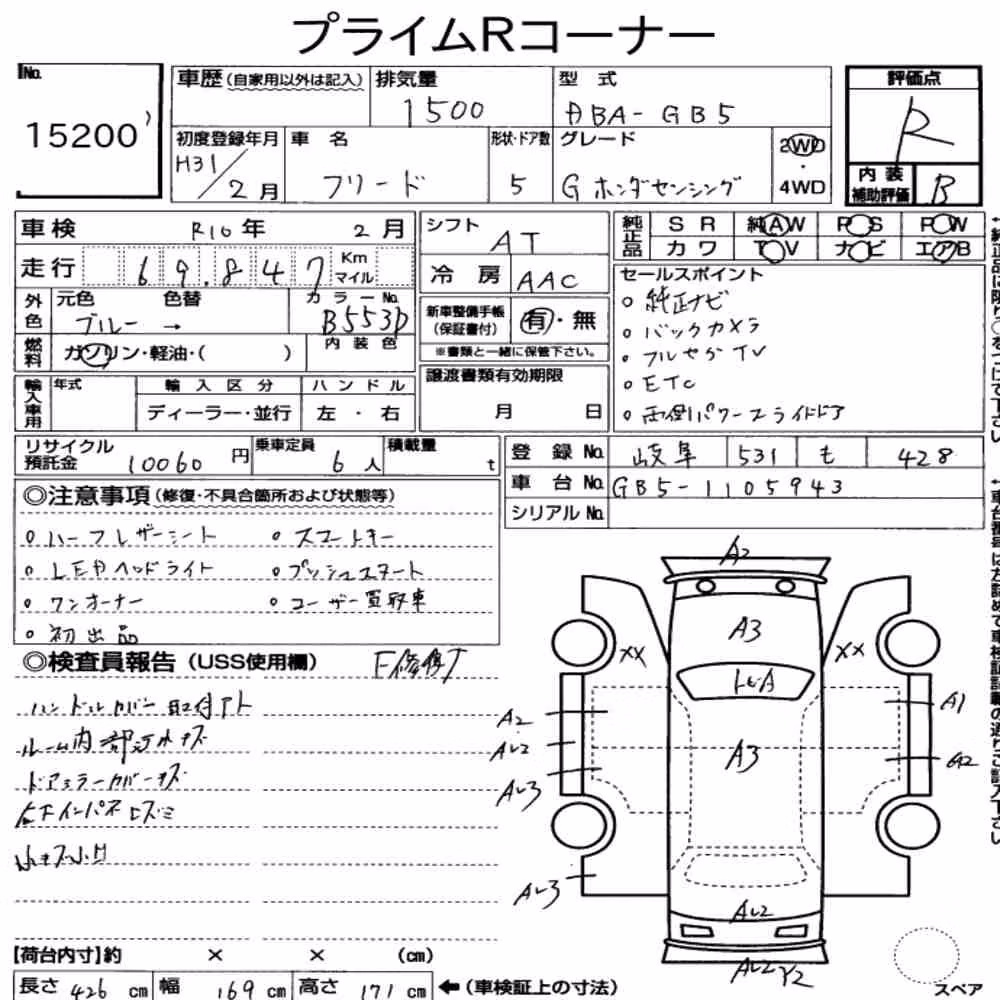 プライムRコーナー
No. 15200
車歴(自家用以外は記入) 排気量 1500 型式 DBA-GB5
評価点 R
初度登録年月 H31/2月 車名 フリード 形状・ドア数 5 グレード G ホンダセンシング 2WD・4WD
内装補助評価 B
車検 R10年 2月
走行 69.847 Km マイル
外色 元色 ブルー 色替 → カラーNo. B553P
燃料 ガソリン・軽油・( ) 内装色
輸入車用 年式 輸入区分 ディーラー・並行 ハンドル 左・右
リサイクル預託金 10060円 乗車定員 6人 積載量 t
シフト AT
冷房 AAC
新車整備手帳(保証書付) 有・無
※書類と一緒に保管下さい。
譲渡書類有効期限 月 日
純正品 SR 純AW PS PW
カワ TV ナビ エアB
セールスポイント
○純正ナビ
○バックカメラ
○フルセグTV
○ETC
○両側パワースライドドア
登録No. 岐阜 531 も 428
車台No. GB5-1105943
シリアルNo.
◎注意事項(修復・不具合箇所および状態等)
○ハーフレザーシート ○スマートキー
○LEDヘッドライト ○プッシュスタート
○ワンオーナー ○ユーザー買取車
○初出品
◎検査員報告(USS使用欄)
ハンドルカバー取付アト
ルーム内部汚れキズ
ドアミラーカバーキズ
小キズ小凹
A2
A3
XX XX
A2 A1
AU2 A3 G2
AU3
AU3
AU2
AU2 Y2
スペア
【荷台内寸】約 × × (cm)
長さ 426 cm 幅 169 cm 高さ 171 cm ←(車検証上の寸法)